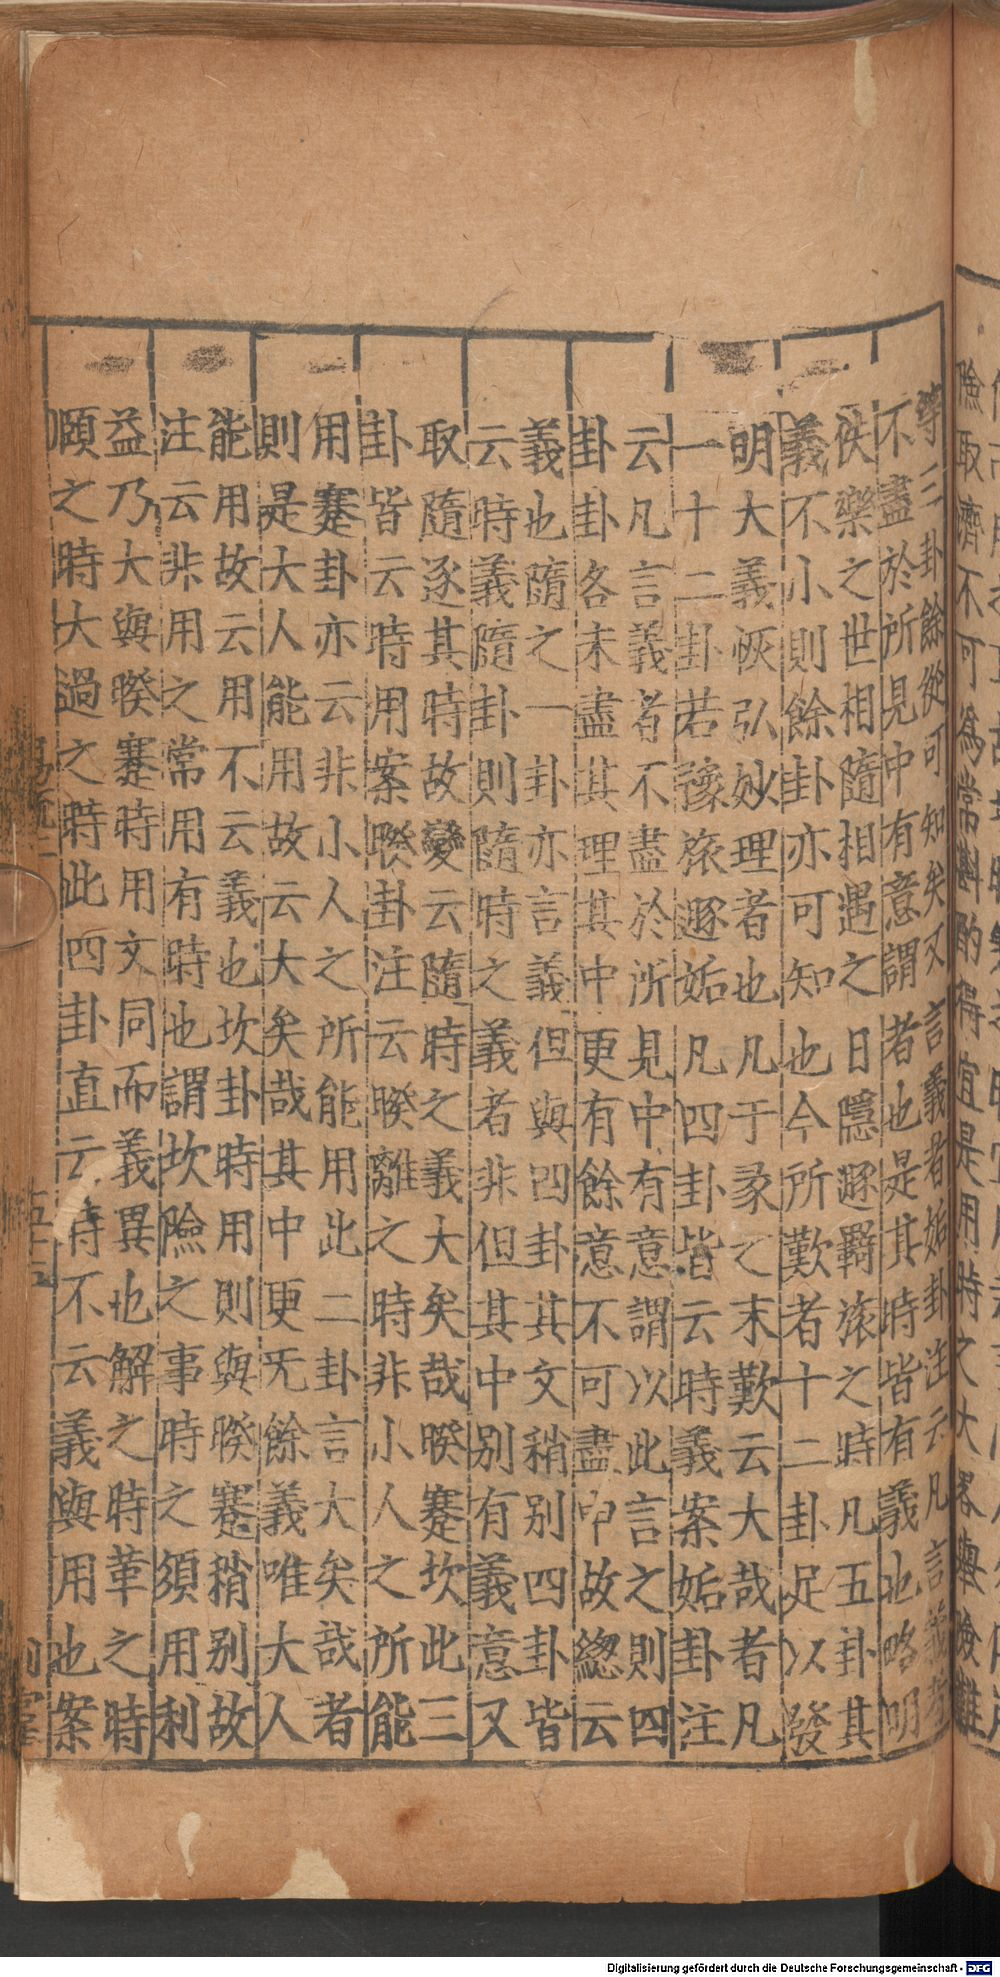 等三卦餘從可知矣又言義者姤卦注云凡言義者
不盡於所見中有意謂者也是其時皆有義也略明
佚樂之世相隨相遇之日隱遯羇旅之時凡五卦其
義不小則餘卦亦可知也今所歎者十二卦足以發
明大義恢弘妙理者也凡于彖之末歎云大哉者凡
一十二卦若豫旅遯姤凡四卦皆云時義案姤卦注
云凡言義者不盡於所見中有意謂以此言之則四
卦卦各未盡其理其中更有餘意不可盡申故緫云
義也隨之一卦亦言義但與四卦其文稍別四卦皆
云時義隨卦則隨時之義者非但其中別有義意又
取隨逐其時故變云隨時之義大矣哉睽蹇坎此三
卦皆云時用案睽卦注云睽離之時非小人之所能
用蹇卦亦云非小人之所能用此二卦言大矣哉者
則是大人能用故云大矣哉其中更无餘義唯大人
能用故云用不云義也坎卦時用則與睽蹇稍別故
注云非用之常用有時也謂坎險之事時之須用利
益乃大與睽蹇時用文同而義異也解之時革之時
頤之時大過之時此四卦直云時不云義與用也案
險取濟不可為常斟酌得宜是用時之大略舉險難
Digitalisierung gefördert durch die Deutsche Forschungsgemeinschaft - DFG